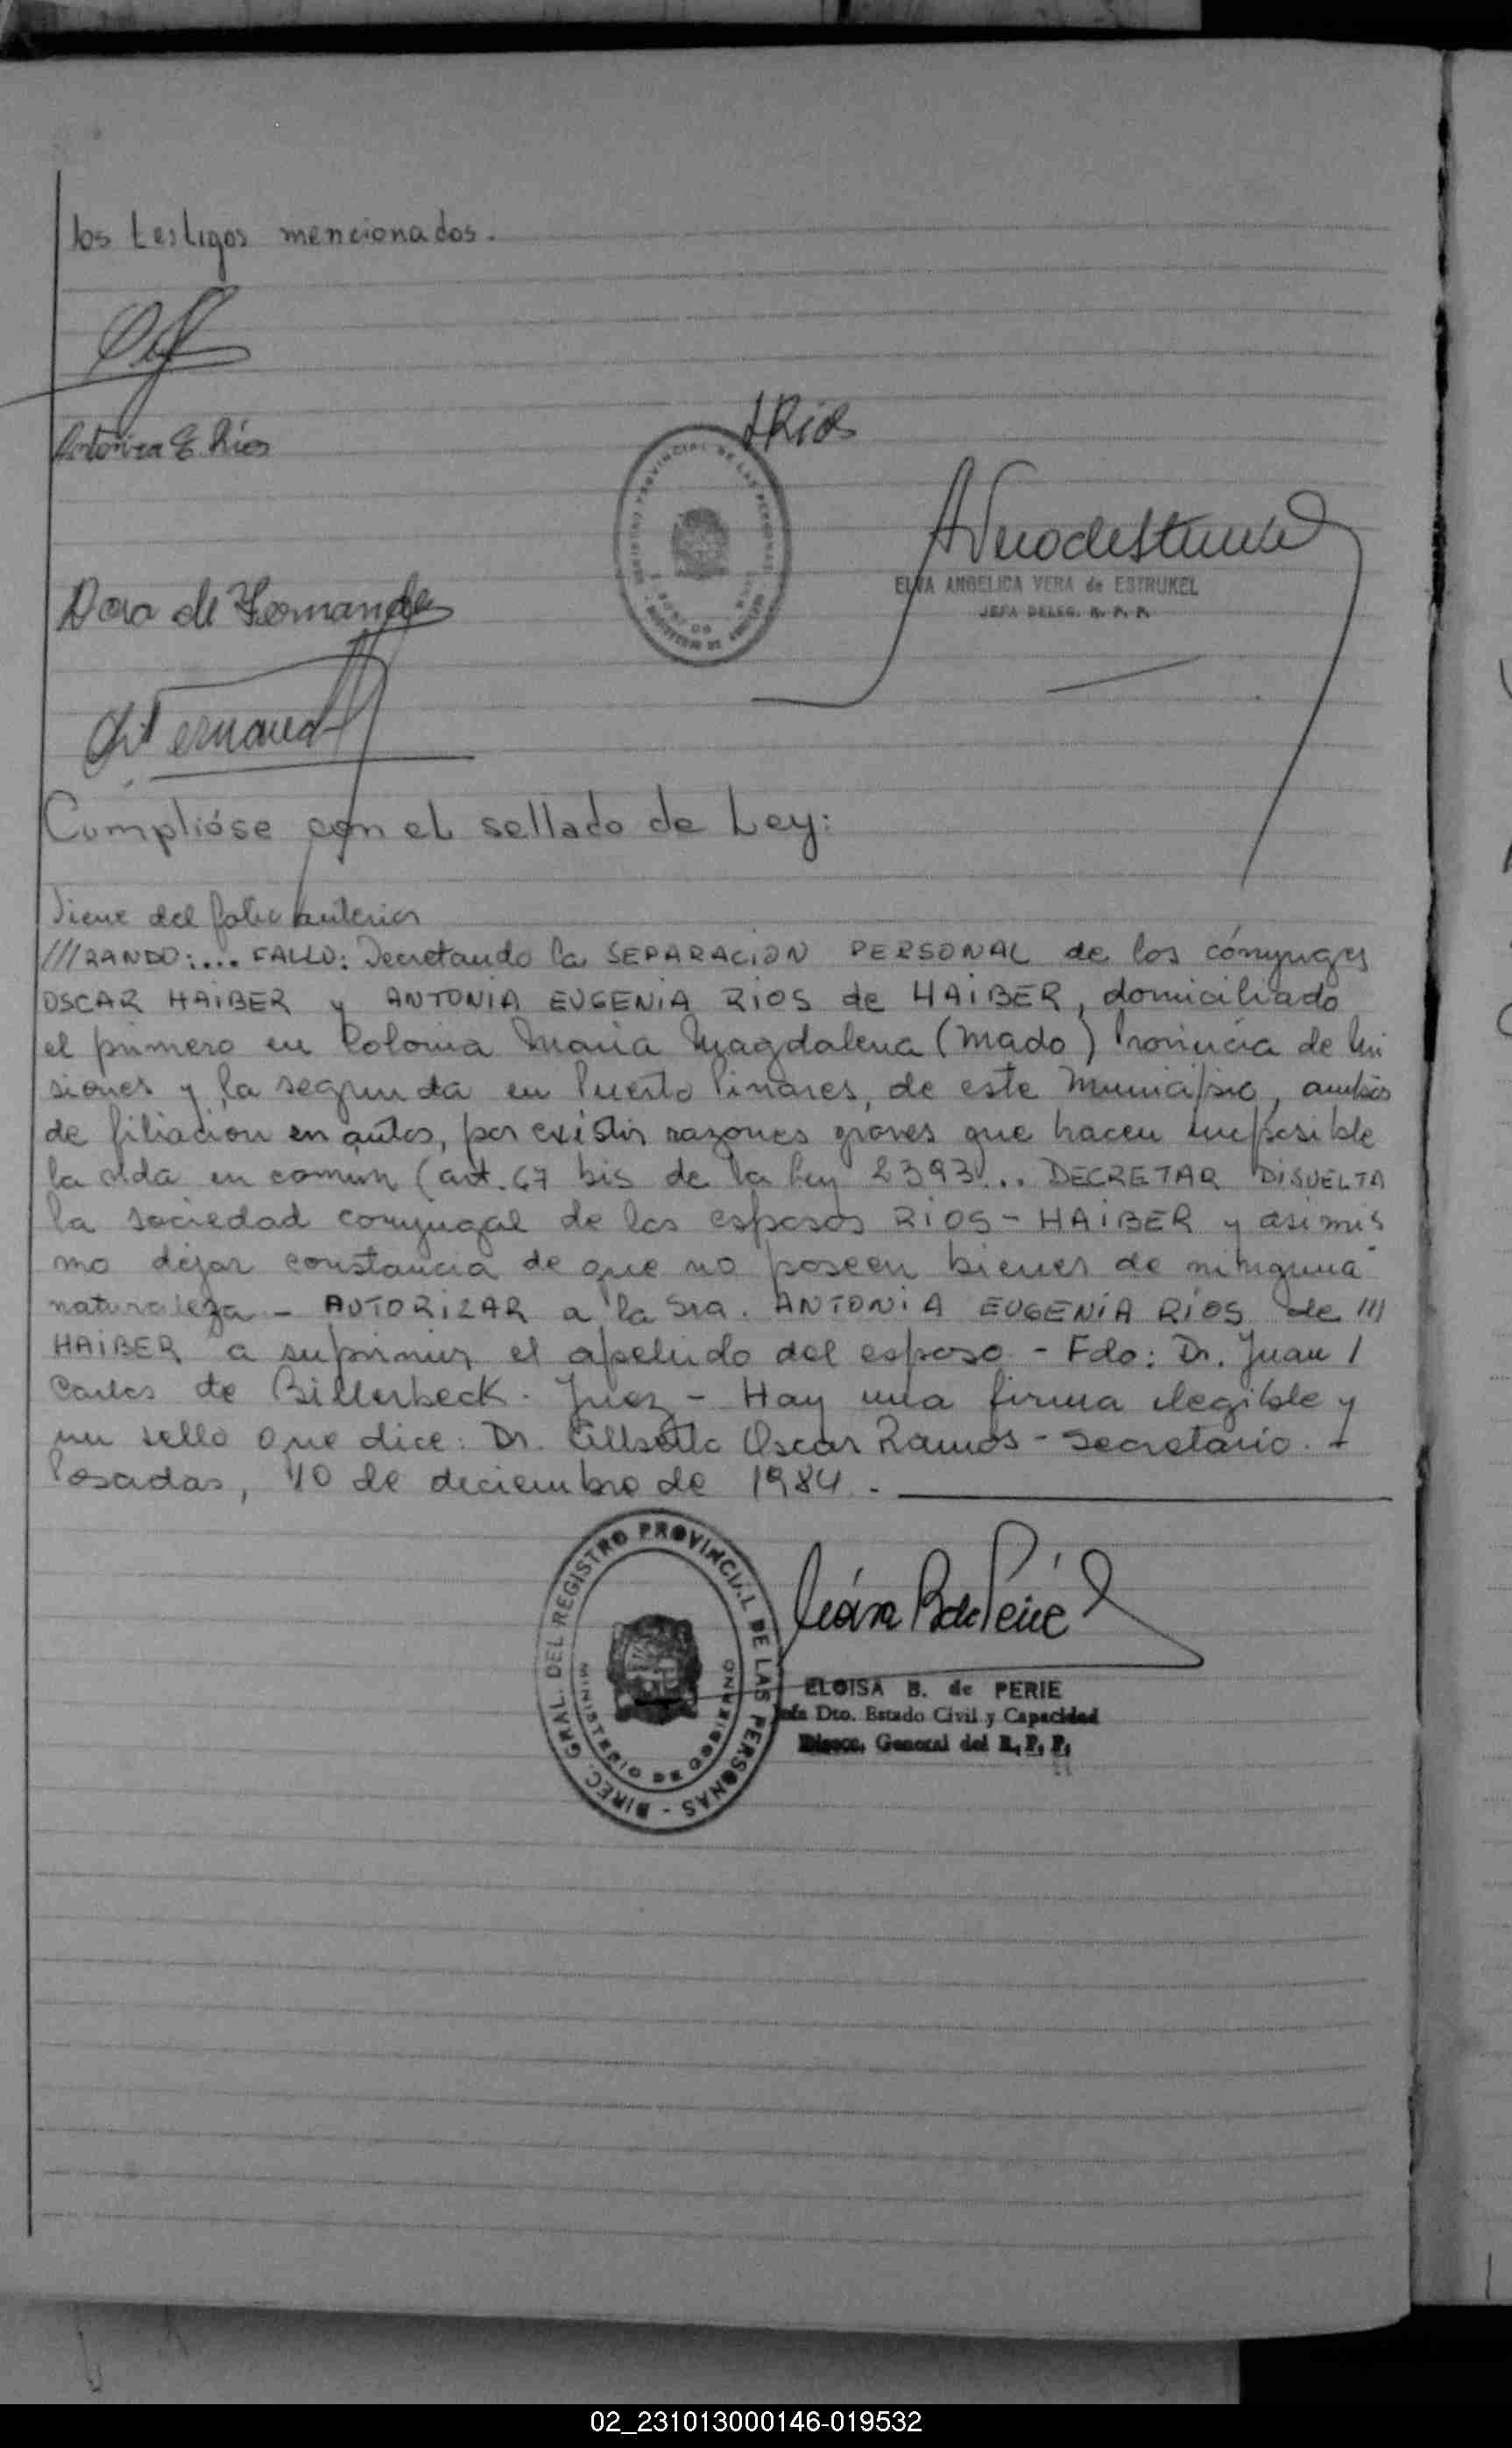 los testigos mencionados.
Antonia E Ríos
ARios
ELVA ANGELICA VERA de ESTRUKEL
JEFA DELEG. R. P. P.
Dora de Hernandez
Cumplióse con el sellado de Ley:
Viene del folio anterior
///RANDO:... FALLO: Decretando la SEPARACION PERSONAL de los cónyuges
OSCAR HAIBER y ANTONIA EUGENIA RIOS de HAIBER, domiciliado
el primero en Colonia Maria Magdalena (Mado) Provincia de Mi
siones y la segunda en Puerto Pinares, de este Municipio, ambos
de filiacion en autos, por existir razones graves que hacen imposible
la vida en comun (art. 67 bis de la ley 2393... DECRETAR DISUELTA
la sociedad conyugal de los esposos RIOS - HAIBER y asimis
mo dejar constancia de que no poseen bienes de ninguna
naturaleza - AUTORIZAR a la Sra. ANTONIA EUGENIA RÍOS de ///
HAIBER a suprimir el apellido del esposo - Fdo: Dr. Juan /
Carlos de Billerbeck. Juez - Hay una firma ilegible y
un sello que dice: Dr. Oscar Ramos - Secretario. -
Posadas, 10 de diciembre de 1984. -
DIREC. GRAL. DEL REGISTRO PROVINCIAL DE LAS PERSONAS
MINISTERIO DE GOBIERNO
ELOISA B. de PERIE
Jefa Dto. Estado Civil y Capacidad
Direcc. General del R. P. P.
02_231013000146-019532